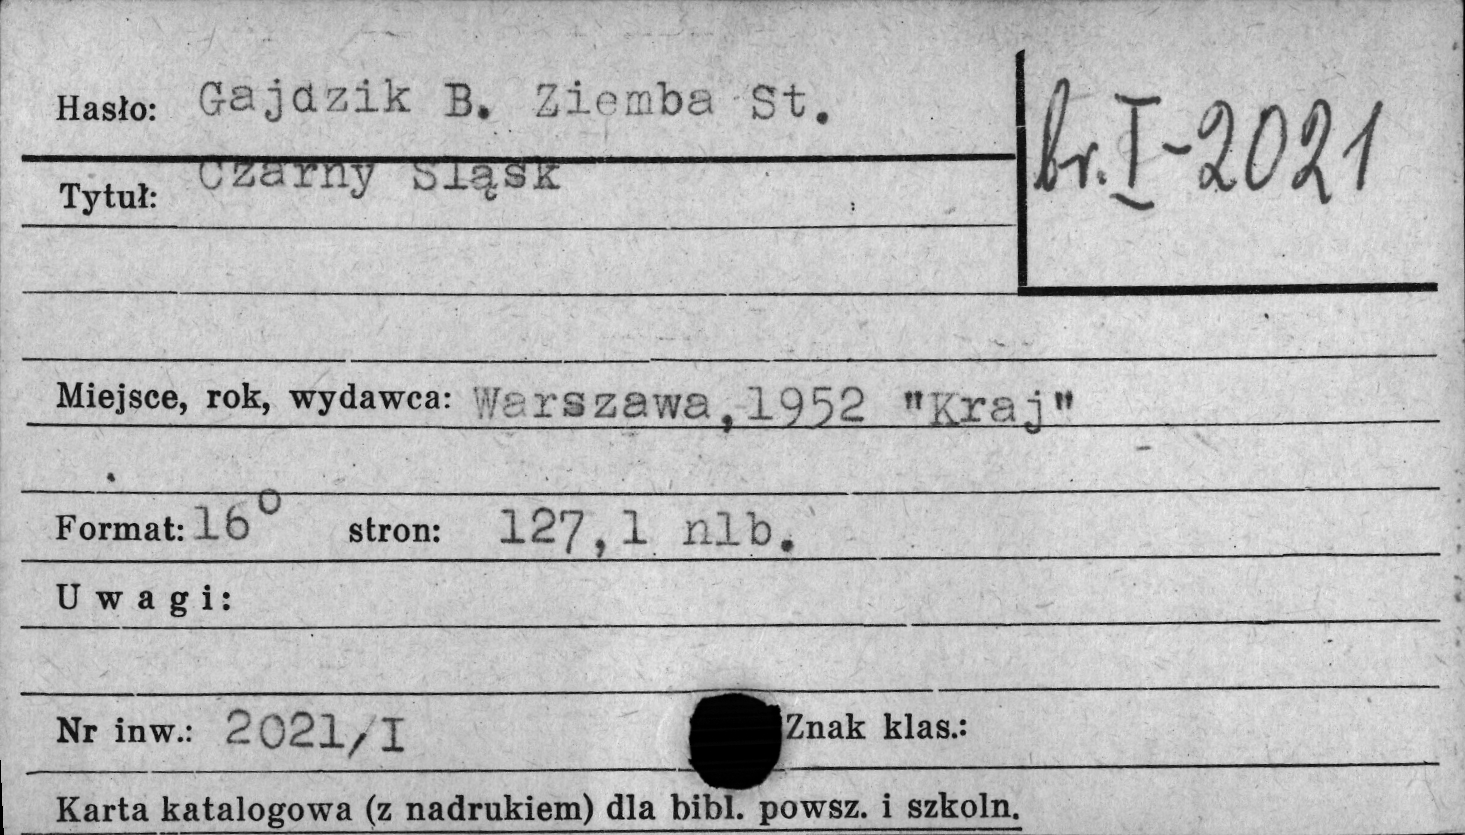 Hasło: Gajdzik B. Ziemba St.
br. I-2021
Tytuł: Czarny Śląsk
Miejsce, rok, wydawca: Warszawa,1952 "Kraj"
Format: 16° stron: 127,1 nlb.
Uwagi:
Nr inw.: 2021/I Znak klas.:
Karta katalogowa (z nadrukiem) dla bibl. powsz. i szkoln.